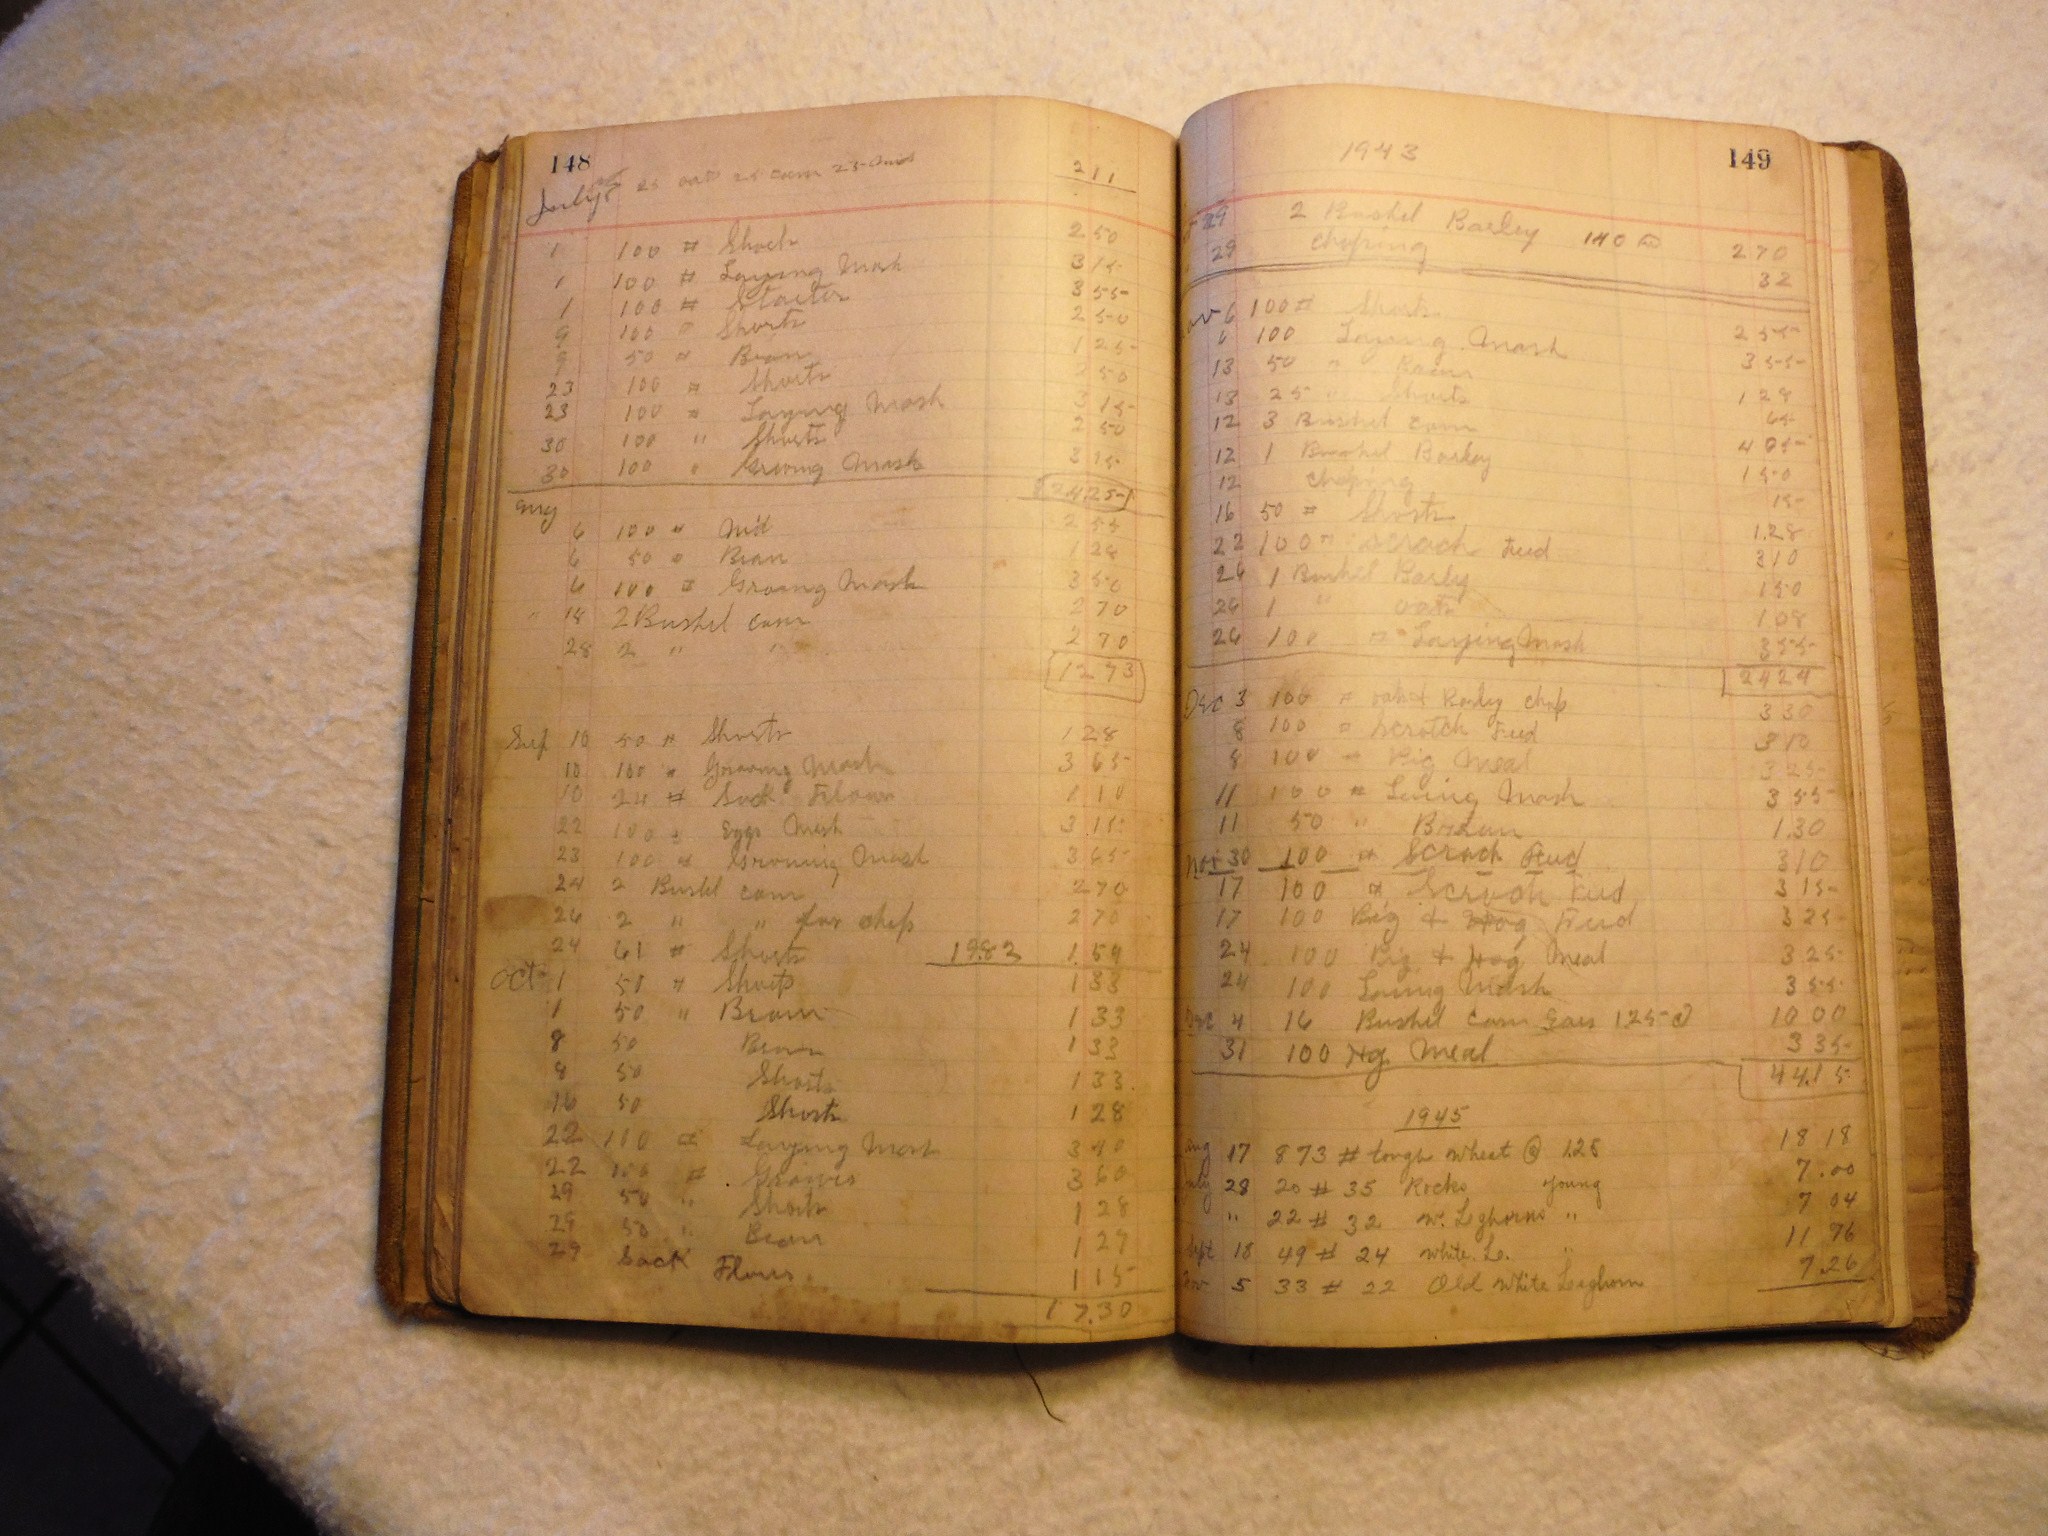 148
July 25 oat 25 corn 25 211
1 100 # Shorts 2 50
1 100 # Laying Mash 3 15
1 100 # Starter 3 55
9 100 " Shorts 2 50
9 50 " Bran 1 25
23 100 " Shorts 2 50
23 100 " Laying Mash 3 15
30 100 " Shorts 2 50
30 100 " Growing Mash 3 15
24.25
Aug
6 100 " Mid 2 55
6 50 " Bran 1 28
6 100 # Growing Mash 3 50
" 18 2 Bushel corn 2 70
28 2 " " 2 70
12 73
Sep 10 50 # Shorts 1 28
10 100 " Growing Mash 3 65
10 24 # Sack Flour 1 10
22 100 " Eggs Mash 3 15
23 100 " Growing Mash 3 65
24 2 Bushl corn 2 70
24 2 " " for chop 2 70
24 61 # Shorts 19.82 1.59
Oct 1 50 " Shorts 1 33
1 50 " Bran 1 33
8 50 Bran 1 33
8 50 Shorts 1 33
16 50 Shorts 1 28
22 100 # Laying Mash 3 40
22 100 # Growing 3 60
29 50 " Shorts 1 28
29 50 " Bran 1 27
29 Sack Flour 1 15
17.30
1943
149
29 2 Bushel Barley 140 2 70
29 choping 32
Nov 6 100 # Shorts 2 55
6 100 Laying Mash 3 55
13 50 " Bran 1 28
13 25 " Shorts 65
12 3 Bushel corn 4 05
12 1 Bushel Barley 1 50
12 choping 15
16 50 # Shorts 1.28
22 100 " Scrach Feed 3 10
26 1 Bushel Barly 1 50
26 1 " oats 1 08
26 100 # Laying Mash 3 55
24 24
Dec 3 100 # oats & Barly chop 3 30
8 100 " Scratch Feed 3 10
8 100 " Pig Meal 3 25
11 100 # Laing Mash 3 55
11 50 " Braun 1.30
Nov 30 100 # Scrach Feed 3 10
17 100 # Scrach Feed 3 15
17 100 Pig & Hog Feed 3 25
24 100 Pig & Hog Meal 3 25
24 100 Laing Mash 3 55
Dec 4 16 Bushel Corn Ears 1 25 @ 10 00
31 100 Hg Meal 3 35
44.15
1945
Aug 17 873 # tough Wheat @ 1.25 18 18
July 28 20 # 35 Rocks young 7.00
" 22 # 32 W. Leghorns " 7 04
Sept 18 49 # 24 White Le. " 11 76
Nov 5 33 # 22 Old White Leghorn 7.26